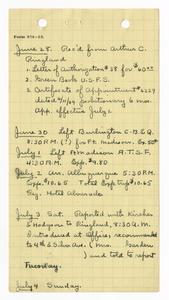 Form 874-23.
June 28. Rec'd from Arthur C.
Ringland
1. Letter of Authorization #38 for $60.00
2. Green Book U.S.F.S.
3. Certificate of Appointment #6229
dated 6/11/09 probationary 6 mos.
App. effective July 1
June 30 Left Burlington C.B.&Q.
8:30 P.M. for Ft. Madison.
July 1 Left Ft Madison A.T.S.F.
4:20 P.M. Exp. $9.80
July 2 Arr. Albuquerque 5:30 P.M.
Exp. $10.65 Total Exp trip $10.65
Reg. Hotel Alvarado
July 3 Sat. Reported with Kircher
& Hodgson to Ringland, 8:30 A.M.
Introduced at Office; recommended
to 4th & Silver Ave. (Mrs.
) and told to report
Tuesday.
July 4 Sunday.